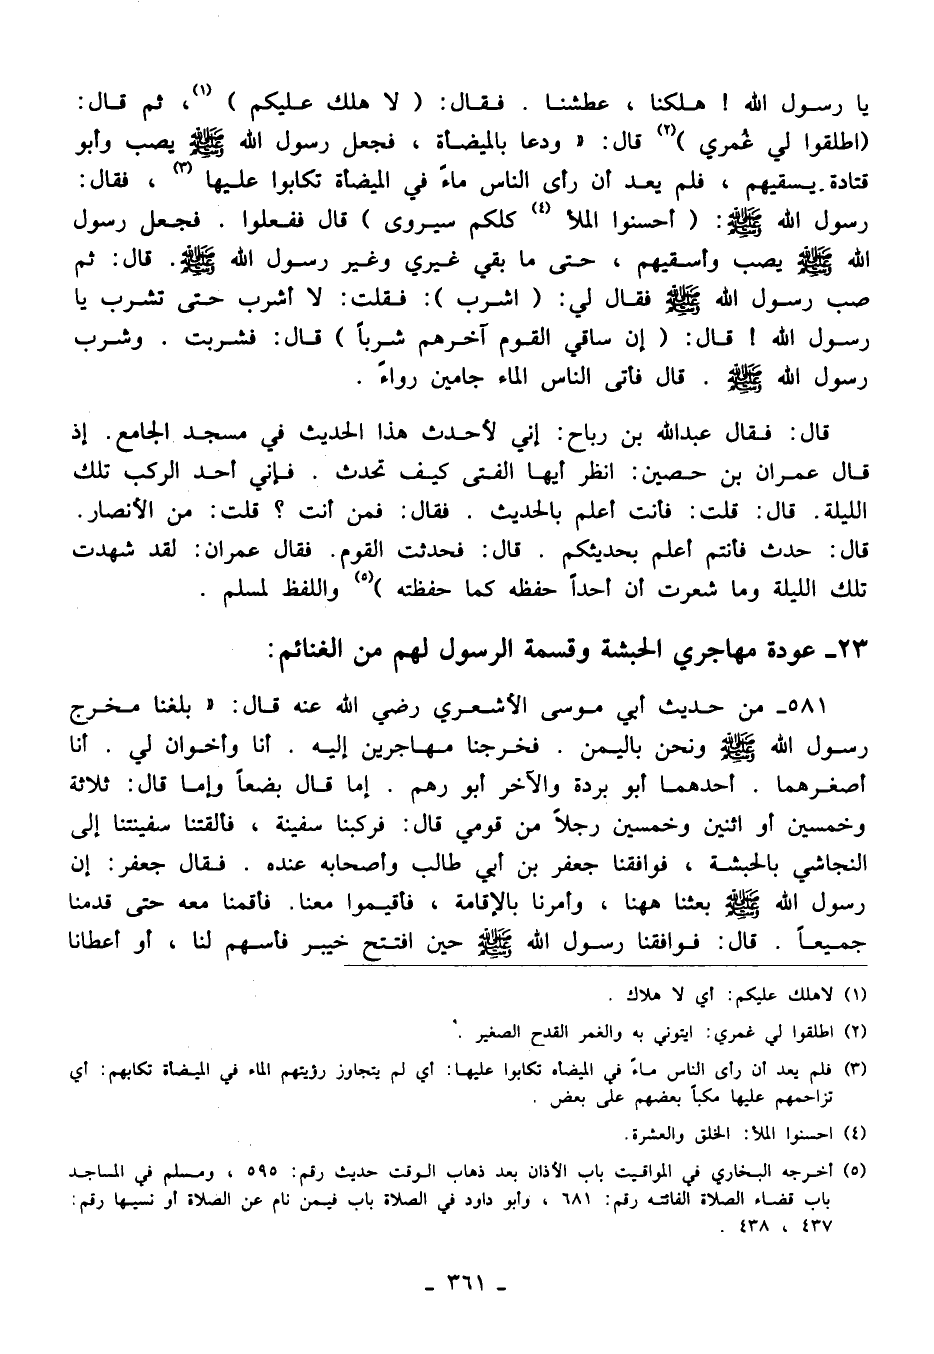 يا رسول الله ! هلكنا ، عطشنا . فقال: ( لا هلك عليكم ) (١)، ثم قال:
(اطلقوا لي غُمري )(٢) قال: « ودعا بالميضأة ، فجعل رسول الله ﷺ يصب وأبو
قتادة يسقيهم ، فلم يعد أن رأى الناس ماءً في الميضأة تكابوا عليها (٣) ، فقال:
رسول الله ﷺ: ( أحسنوا الملأ (٤) كلكم سيروى ) قال ففعلوا . فجعل رسول
الله ﷺ يصب وأسقيهم ، حتى ما بقي غيري وغير رسول الله ﷺ. قال: ثم
صب رسول الله ﷺ فقال لي: ( اشرب ): فقلت: لا أشرب حتى تشرب يا
رسول الله ! قال: ( إن ساقي القوم آخرهم شرباً ) قال: فشربت . وشرب
رسول الله ﷺ . قال فأتى الناس الماء جامين رواءً .
قال: فقال عبدالله بن رباح: إني لأحدث هذا الحديث في مسجد الجامع. إذ
قال عمران بن حصين: انظر أيها الفتى كيف تحدث . فإني أحد الركب تلك
الليلة. قال: قلت: فأنت أعلم بالحديث . فقال: فمن أنت ؟ قلت: من الأنصار.
قال: حدث فأنتم أعلم بحديثكم . قال: فحدثت القوم. فقال عمران: لقد شهدت
تلك الليلة وما شعرت أن أحداً حفظه كما حفظته )(٥) واللفظ لمسلم .
٢٣ـ عودة مهاجري الحبشة وقسمة الرسول لهم من الغنائم:
٥٨١ـ من حديث أبي موسى الأشعري رضي الله عنه قال: « بلغنا مخرج
رسول الله ﷺ ونحن باليمن . فخرجنا مهاجرين إليه . أنا وأخوان لي . أنا
أصغرهما . أحدهما أبو بردة والآخر أبو رهم . إما قال بضعاً وإما قال: ثلاثة
وخمسين أو اثنين وخمسين رجلاً من قومي قال: فركبنا سفينة ، فألقتنا سفينتنا إلى
النجاشي بالحبشة ، فوافقنا جعفر بن أبي طالب وأصحابه عنده . فقال جعفر: إن
رسول الله ﷺ بعثنا ههنا ، وأمرنا بالإقامة ، فأقيموا معنا. فأقمنا معه حتى قدمنا
جميعاً . قال: فوافقنا رسول الله ﷺ حين افتتح خيبر فأسهم لنا ، أو أعطانا
(١) لاهلك عليكم: أي لا هلاك .
(٢) اطلقوا لي غمري: ايتوني به والغمر القدح الصغير .
(٣) فلم يعد أن رأى الناس ماءً في الميضأه تكابوا عليها: أي لم يتجاوز رؤيتهم الماء في الميضأة تكابهم: أي
تزاحمهم عليها مكباً بعضهم على بعض .
(٤) احسنوا الملأ: الخلق والعشرة.
(٥) أخرجه البخاري في المواقيت باب الأذان بعد ذهاب الوقت حديث رقم: ٥٩٥ ، ومسلم في المساجد
باب قضاء الصلاة الفائته رقم: ٦٨١ ، وأبو داود في الصلاة باب فيمن نام عن الصلاة أو نسيها رقم:
٤٣٧ ، ٤٣٨ .
ـ ٣٦١ ـ